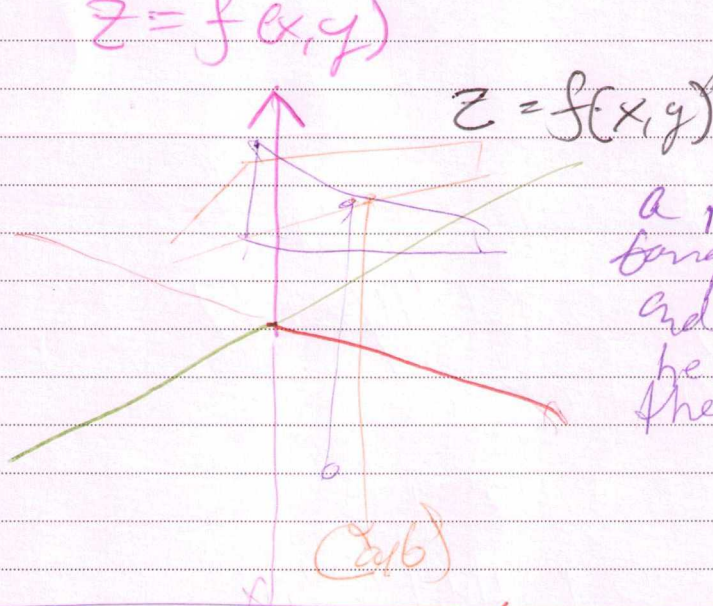 z = f(x,y)
z = f(x,y)
a
and
he
the
(a,b)